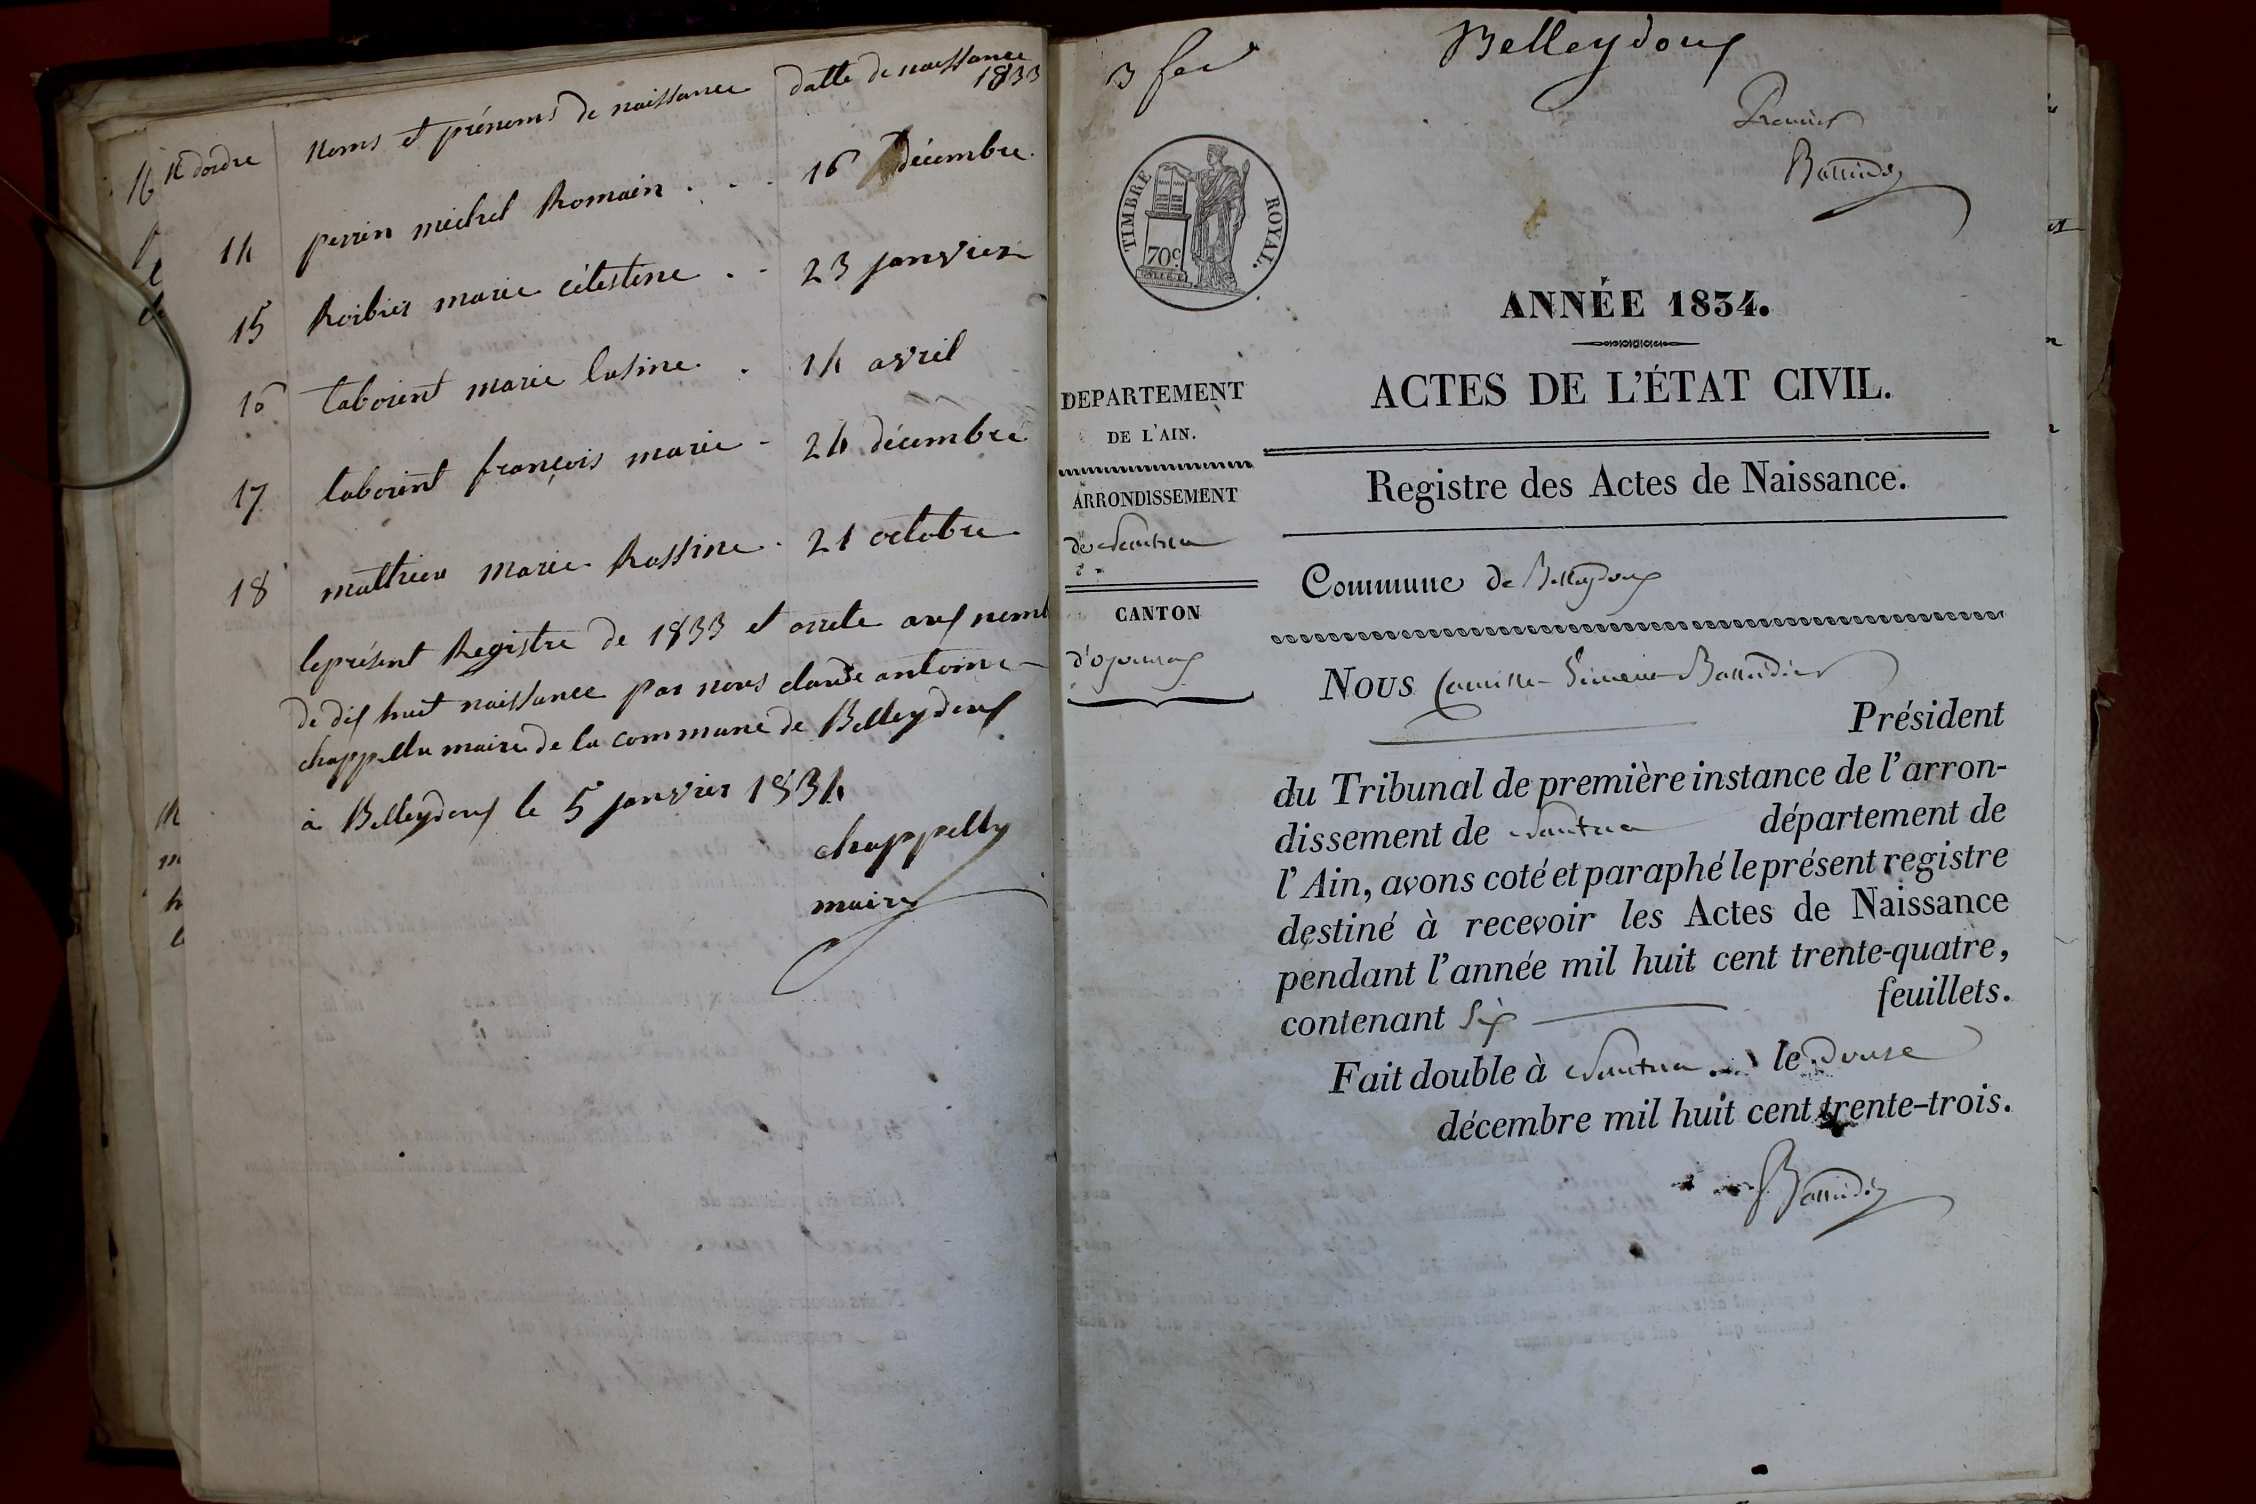 N dordre noms et prénoms de naissance datte de naissance
1833
14 perrin michel Romain . . . 16 décembre.
15 Roibier marie célestine . . 23 janvier
16 taborint marie lusine . 14 avril
17 taborint françois marie - 24 décembre
18 matthieu marie Rossine . 21 octobre
leprésent Registre de 1833 et arrete aux
de dix huit naissance par nous claude antoine
maire de la commune de Belleydoux
à Belleydoux le 5 janvier 1834
maire
Belleydoux
Premier
TIMBRE ROYAL.
70c
ANNÉE 1834.
ACTES DE L'ÉTAT CIVIL.
DEPARTEMENT
DE L'AIN.
Registre des Actes de Naissance.
ARRONDISSEMENT
de Nantua
Commune de Belleydoux
CANTON
d'oyonnax
Nous Camille
Président
du Tribunal de première instance de l'arron-
dissement de Nantua département de
l'Ain, avons coté et paraphé le présent registre
destiné à recevoir les Actes de Naissance
pendant l'année mil huit cent trente-quatre,
contenant Six feuillets.
Fait double à Nantua le Douze
décembre mil huit cent trente-trois.